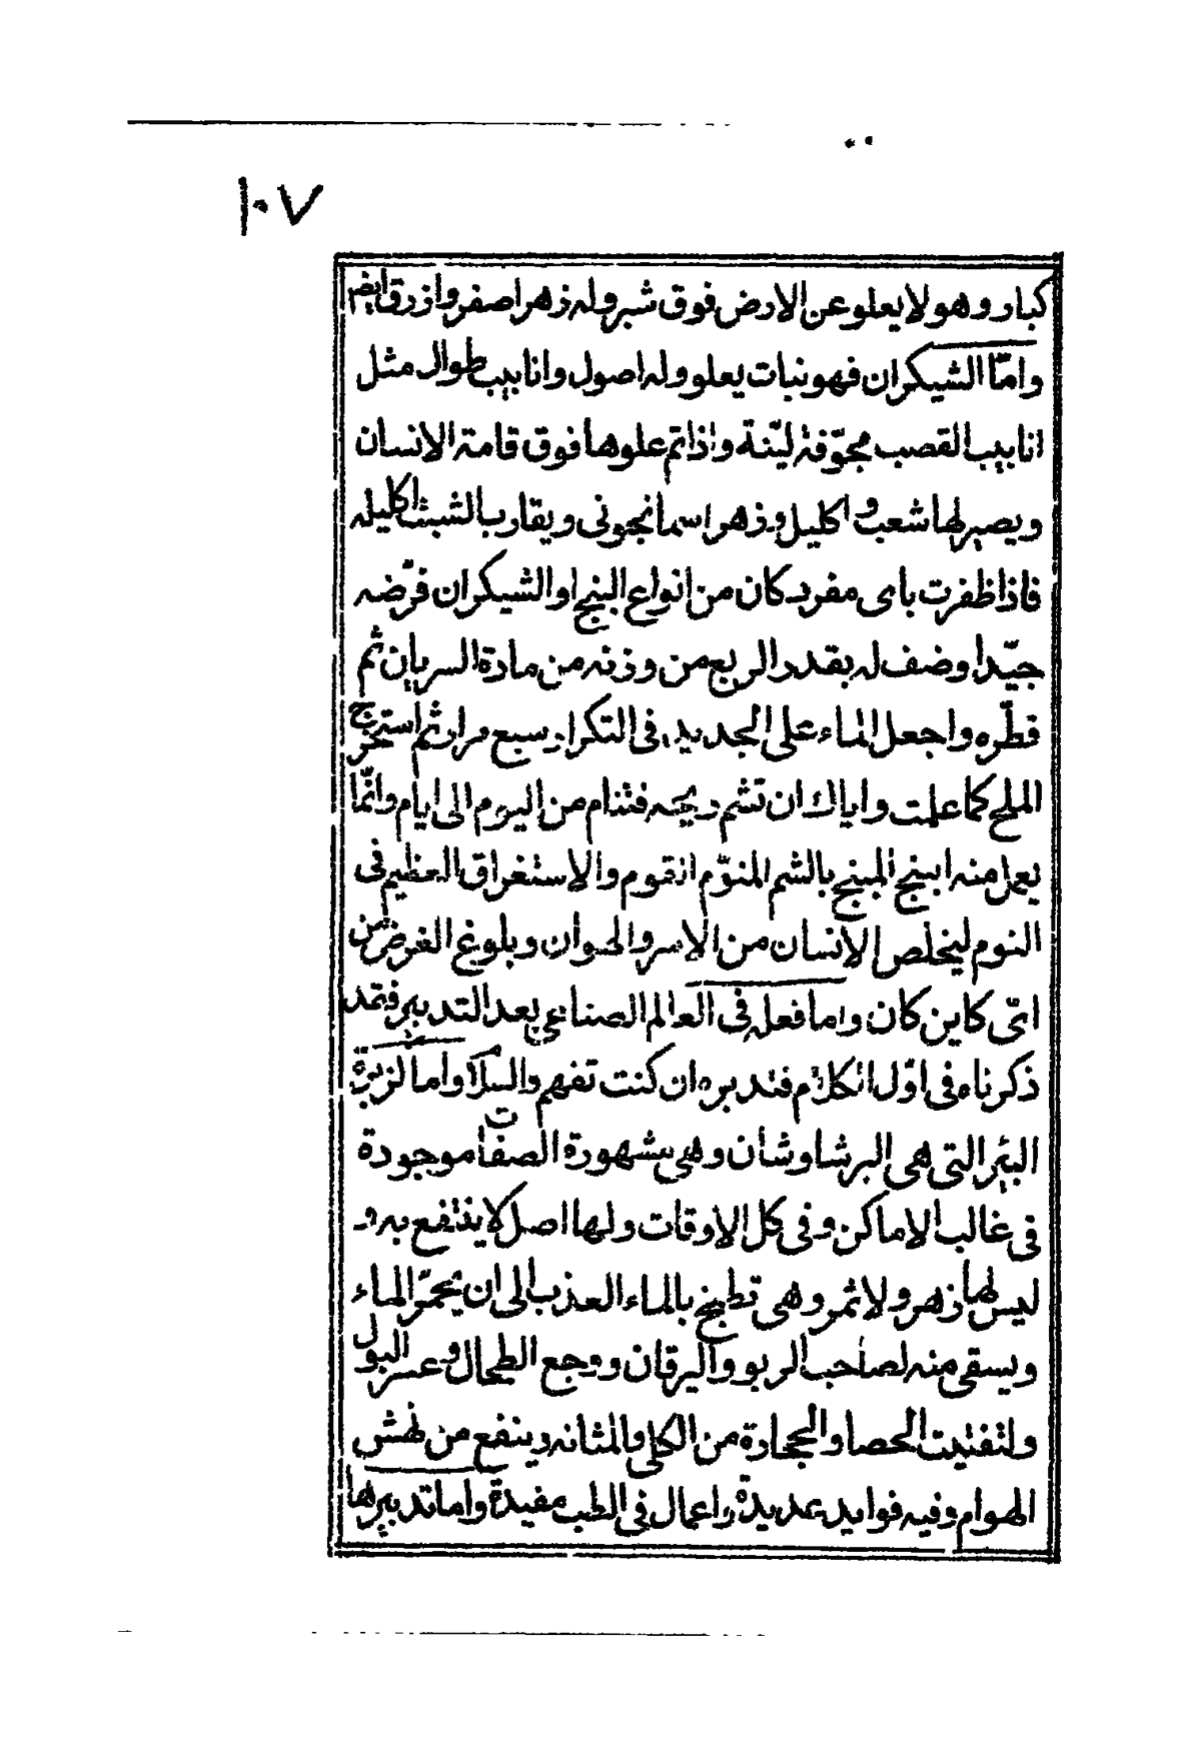 ١٠٧
كبار وهو لا يعلو عن الارض فوق شبر وله زهر اصفر وازرق ايضا
وامّا الشيكران فهو نبات يعلو وله اصول وانابيب طوال مثل
انابيب القصب مجوّفة ليّنة واذا تم علوها فوق قامة الانسان
ويصير لها شعب و اكليل وزهر اسمانجونى ويقارب الشبث اكليله
فاذا ظفرت باى مفرد كان من انواع البنج او الشيكران فرّضه
جيّدا وضف له بقدر الربع من وزنه من مادة السريان ثم
قطّره واجعل الماء على الجديد فى التكرار سبع مرار ثم استخرج
الملح كما علمت واياك ان تشم ريحه فتنام من اليوم الى ايام وانّما
يعمل منه ابنج المبنج بالشم المنوّم القوم والاستغراق العظيم فى
النوم ليخلص الانسان من الاسر والهوان وبلوغ الغرض من
اىّ كاين كان واما فعله فى العالم الصناعى بعد التدبير فقد
ذكرناه فى اوّل الكلام فتدبره ان كنت تفهم والسلام واما لزبرة
البئر التى هى البرشاوشان وهى مشهورة الصفات موجودة
فى غالب الاماكن وفى كل الاوقات ولها اصل لا ينتفع به و
ليس لها زهر ولا ثمر وهى تطبخ بالماء العذب الى ان يحمرّ الماء
ويسقى منه لصاحب الربو واليرقان ووجع الطحال و عسر البول
ولتفتيت الحصا والحجارة من الكلى والمثانه وينفع من نهش
الهوام وفيه فوايد عديدة واعمال فى الطب مفيدة واما تدبيرها